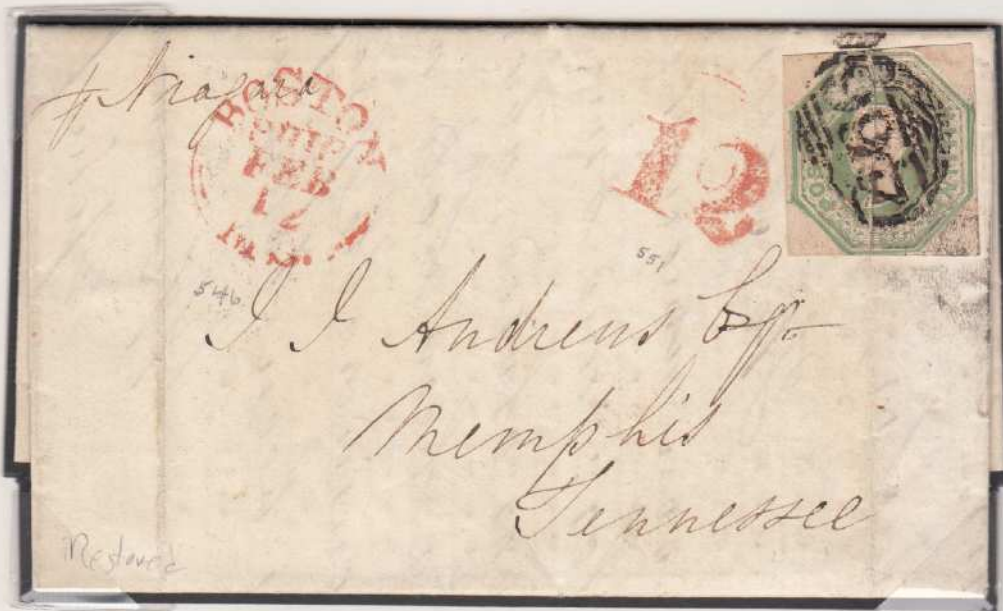 p Niagara
BOSTON
SHIP
FEB
12
MS.
12
551
546
J J Andrews Esqr
Memphis
Tennessee
Restored